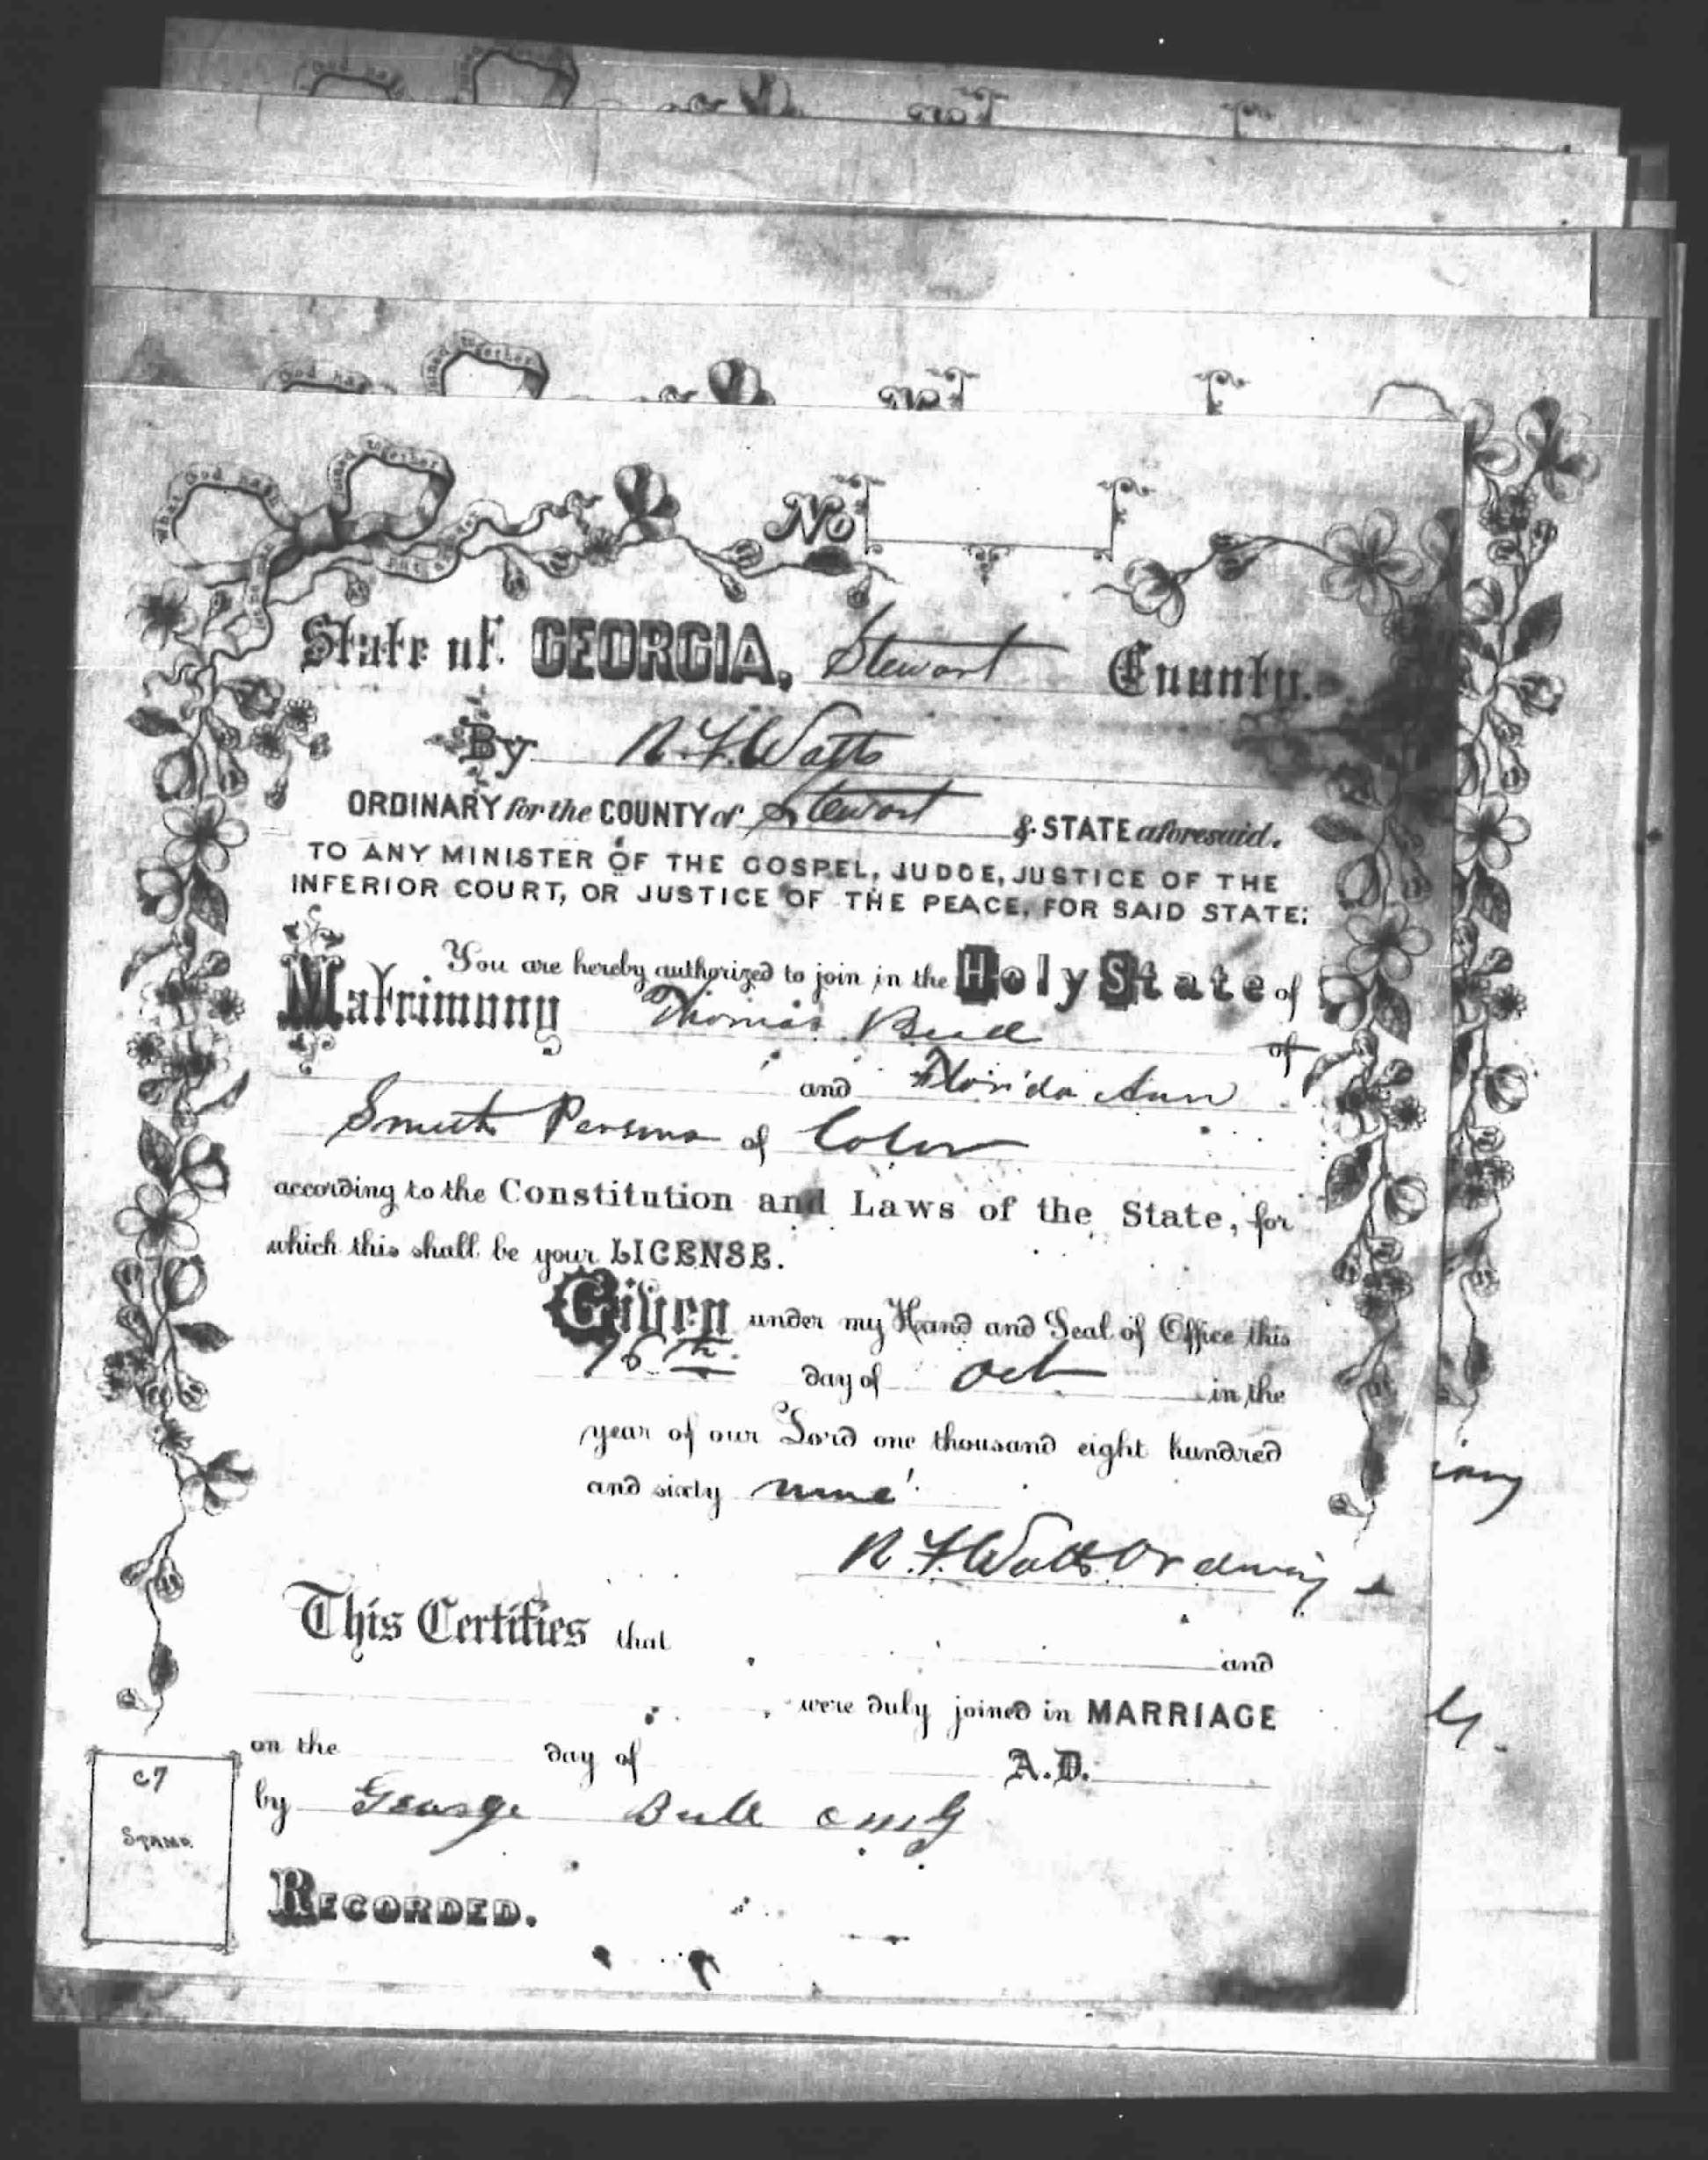 What God hath joined together
let no man put asunder
No
State of GEORGIA, Stewart County.
By N. F. Watts
ORDINARY for the COUNTY of Stewart & STATE aforesaid.
TO ANY MINISTER OF THE GOSPEL, JUDGE, JUSTICE OF THE
INFERIOR COURT, OR JUSTICE OF THE PEACE, FOR SAID STATE:
You are hereby authorized to join in the Holy State of
Matrimony Thomas of
and Florida Ann
Smith Persons of Color
according to the Constitution and Laws of the State, for
which this shall be your LICENSE.
Given under my Hand and Seal of Office this
16th day of Oct in the
year of our Lord one thousand eight hundred
and sixty nine
N. F. Watts Ordinary
This Certifies that and
were duly joined in MARRIAGE
on the day of A.D.
by George Bull
STAMP
RECORDED.